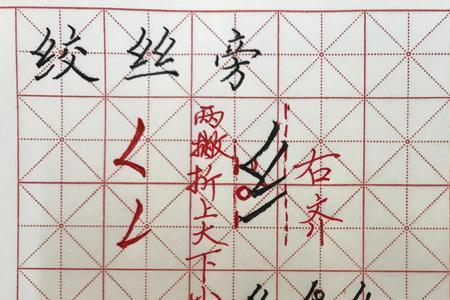 绞丝旁
两撇折上大下小
纟
右齐